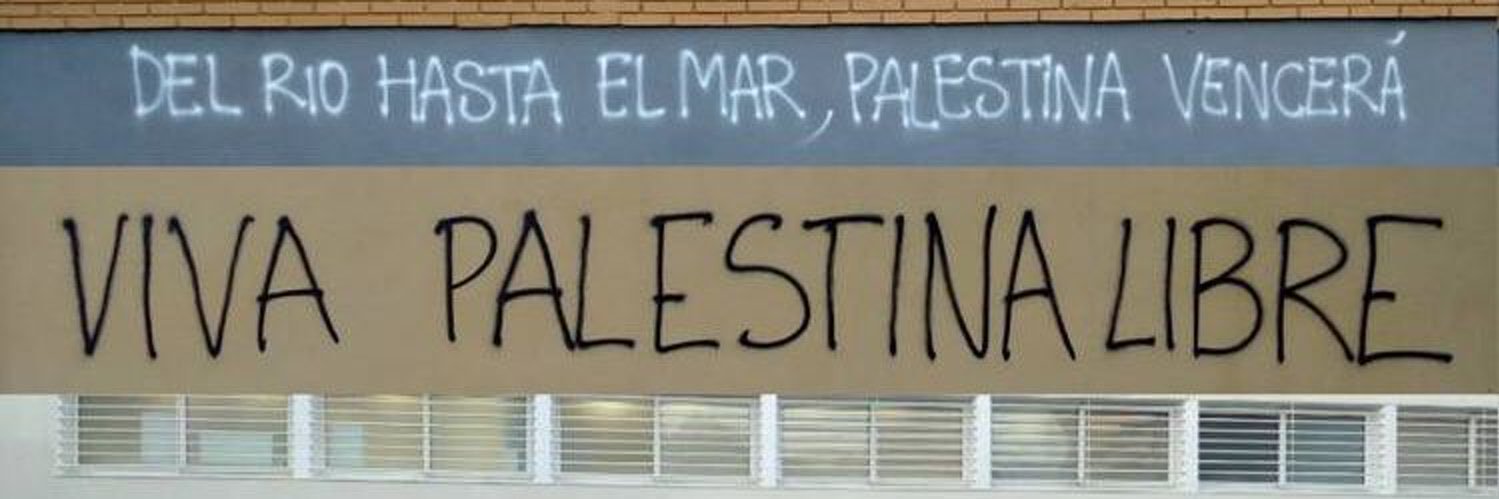 DEL RIO HASTA EL MAR, PALESTINA VENCERÁ
VIVA PALESTINA LIBRE